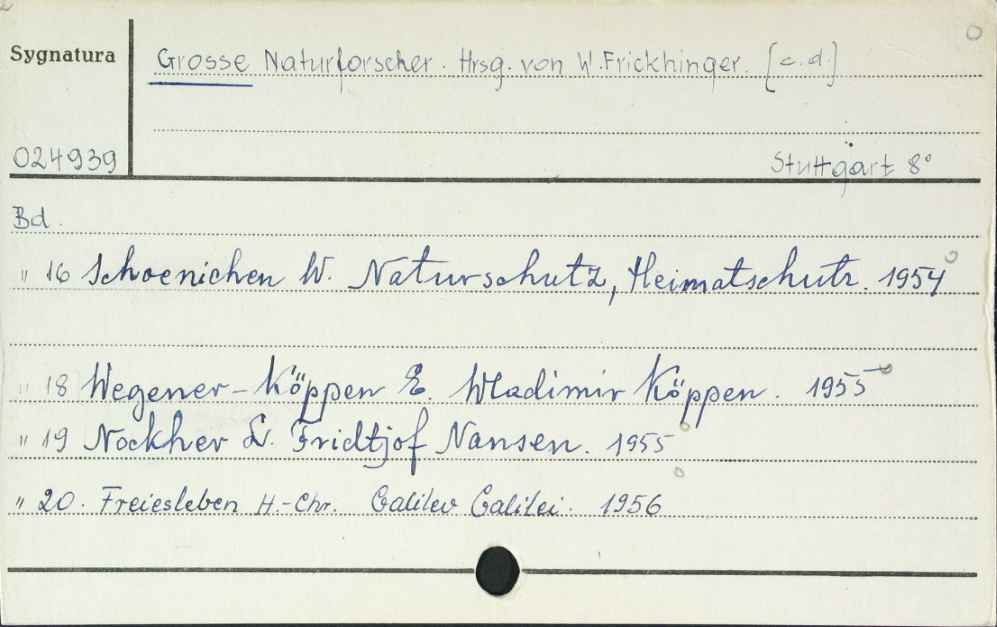 Sygnatura
Grosse Naturforscher. Hrsg. von W. Frickhinger. [c.d.]
024939
Stuttgart 8°
Bd.
" 16 Schoenichen W. Naturschutz, Heimatschutz. 1954
" 18 Wegener-Köppen E. Wladimir Köppen. 1955
" 19 Nockher L. Fridtjof Nansen. 1955
" 20. Freiesleben H.-Chr. Galileo Galilei. 1956